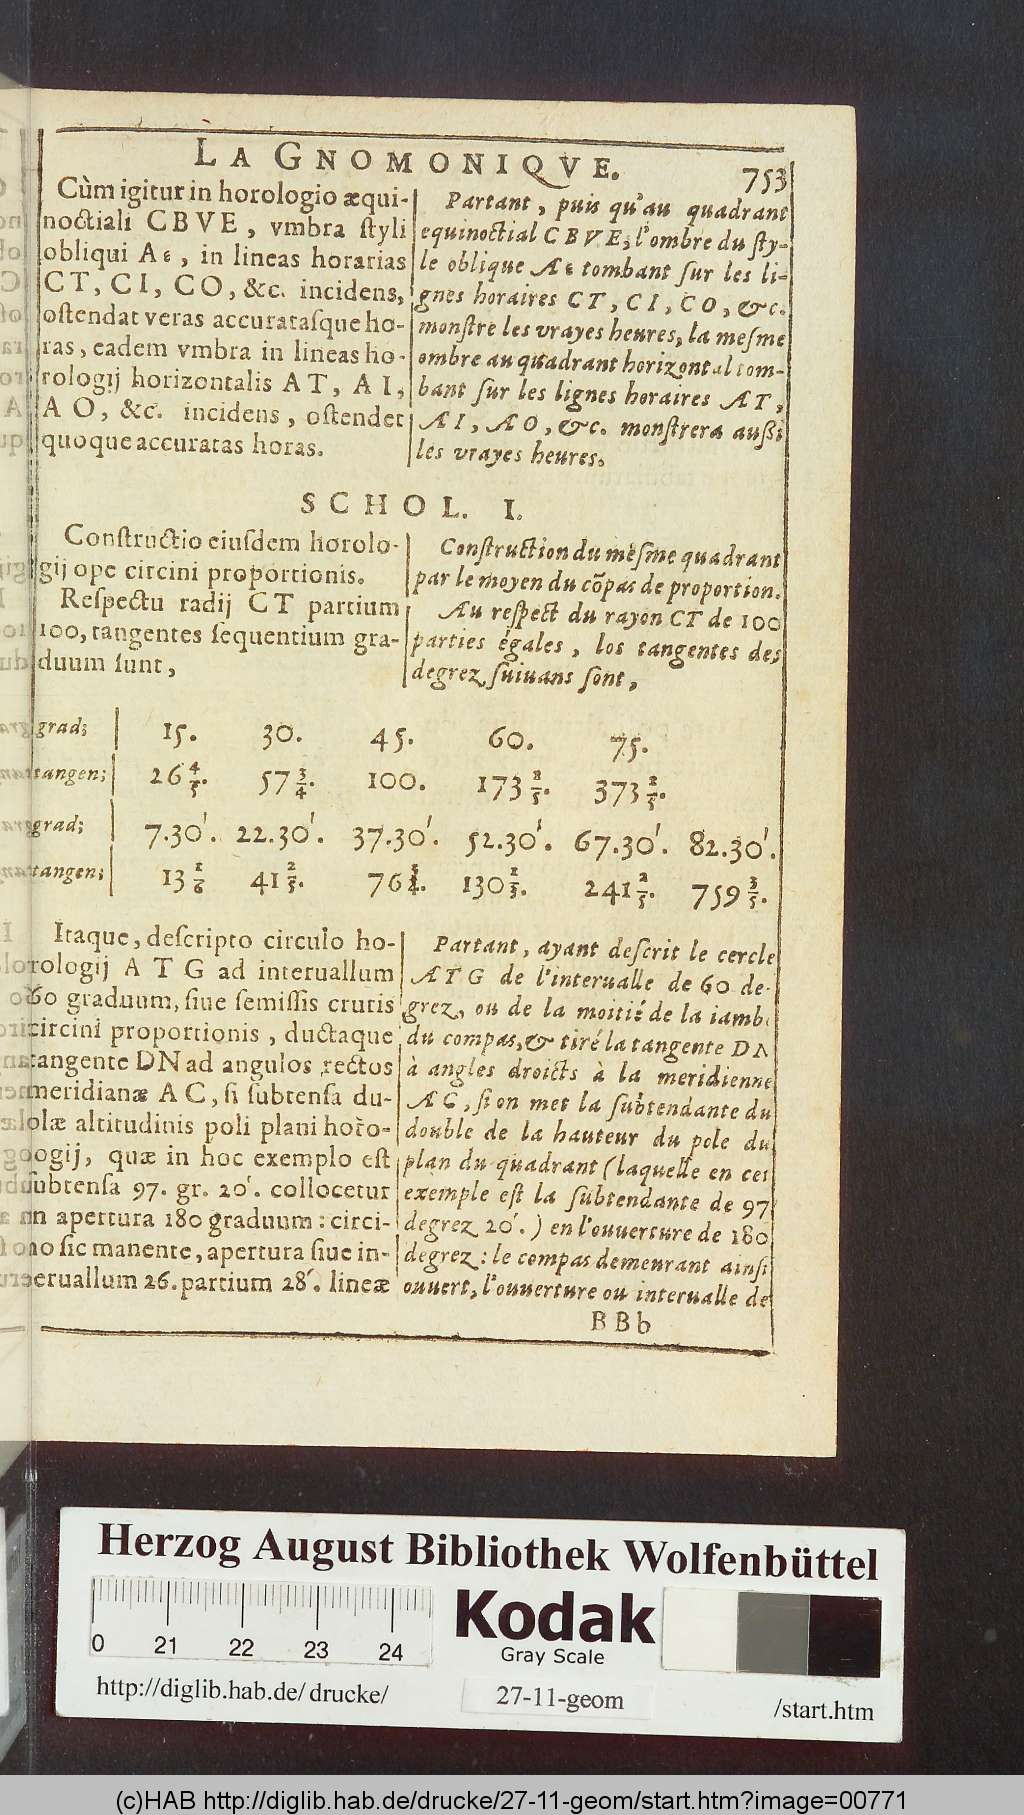 LA GNOMONIQVE.
753
Cùm igitur in horologio æqui-
noctiali CBVE, vmbra ſtyli
obliqui Aε, in lineas horarias
CT, CI, CO, &c. incidens,
oſtendat veras accurataſque ho-
ras, eadem vmbra in lineas ho-
rologij horizontalis AT, AI,
AO, &c. incidens, oſtendet
quoque accuratas horas.
Partant, puis qu'au quadrant
equinoctial CBVE, l'ombre du ſty-
le oblique Aε tombant ſur les li-
gnes horaires CT, CI, CO, &c.
monſtre les vrayes heures, la meſme
ombre au quadrant horizontal tom-
bant ſur les lignes horaires AT,
AI, AO, &c. monſtrera außi
les vrayes heures.
SCHOL. I.
Conſtructio eiuſdem horolo-
gij ope circini proportionis.
Reſpectu radij CT partium
100, tangentes ſequentium gra-
duum ſunt,
Conſtruction du meſme quadrant
par le moyen du cõpas de proportion.
Au reſpect du rayon CT de 100
parties égales, los tangentes des
degrez ſuiuans ſont,
grad; 15. 30. 45. 60. 75.
tangen; 26 4/5. 57 3/4. 100. 173 2/5. 373 2/5.
grad; 7.30'. 22.30'. 37.30'. 52.30'. 67.30'. 82.30'.
tangen; 13 1/6 41 2/5. 76 130 1/3. 241 2/5. 759 3/5.
Itaque, deſcripto circulo ho-
rologij ATG ad interuallum
60 graduum, ſiue ſemiſſis cruris
circini proportionis, ductaque
tangente DN ad angulos rectos
meridianæ AC, ſi ſubtenſa du-
olæ altitudinis poli plani horo-
ogij, quæ in hoc exemplo eſt
ſubtenſa 97. gr. 20'. collocetur
in apertura 180 graduum: circi-
no ſic manente, apertura ſiue in-
eruallum 26. partium 28'. lineæ
Partant, ayant deſcrit le cercle
ATG de l'interualle de 60 de-
grez, ou de la moitié de la iamb
du compas, & tiré la tangente DN
à angles droicts à la meridienne
AC, ſi on met la ſubtendante du
double de la hauteur du pole du
plan du quadrant (laquelle en cet
exemple eſt la ſubtendante de 97
degrez 20'.) en l'ouuerture de 180
degrez: le compas demeurant ainſi
ouuert, l'ouuerture ou interualle de
BBb
Herzog August Bibliothek Wolfenbüttel
0 21 22 23 24
Kodak
Gray Scale
http://diglib.hab.de/drucke/
27-11-geom
/start.htm
(c)HAB http://diglib.hab.de/drucke/27-11-geom/start.htm?image=00771